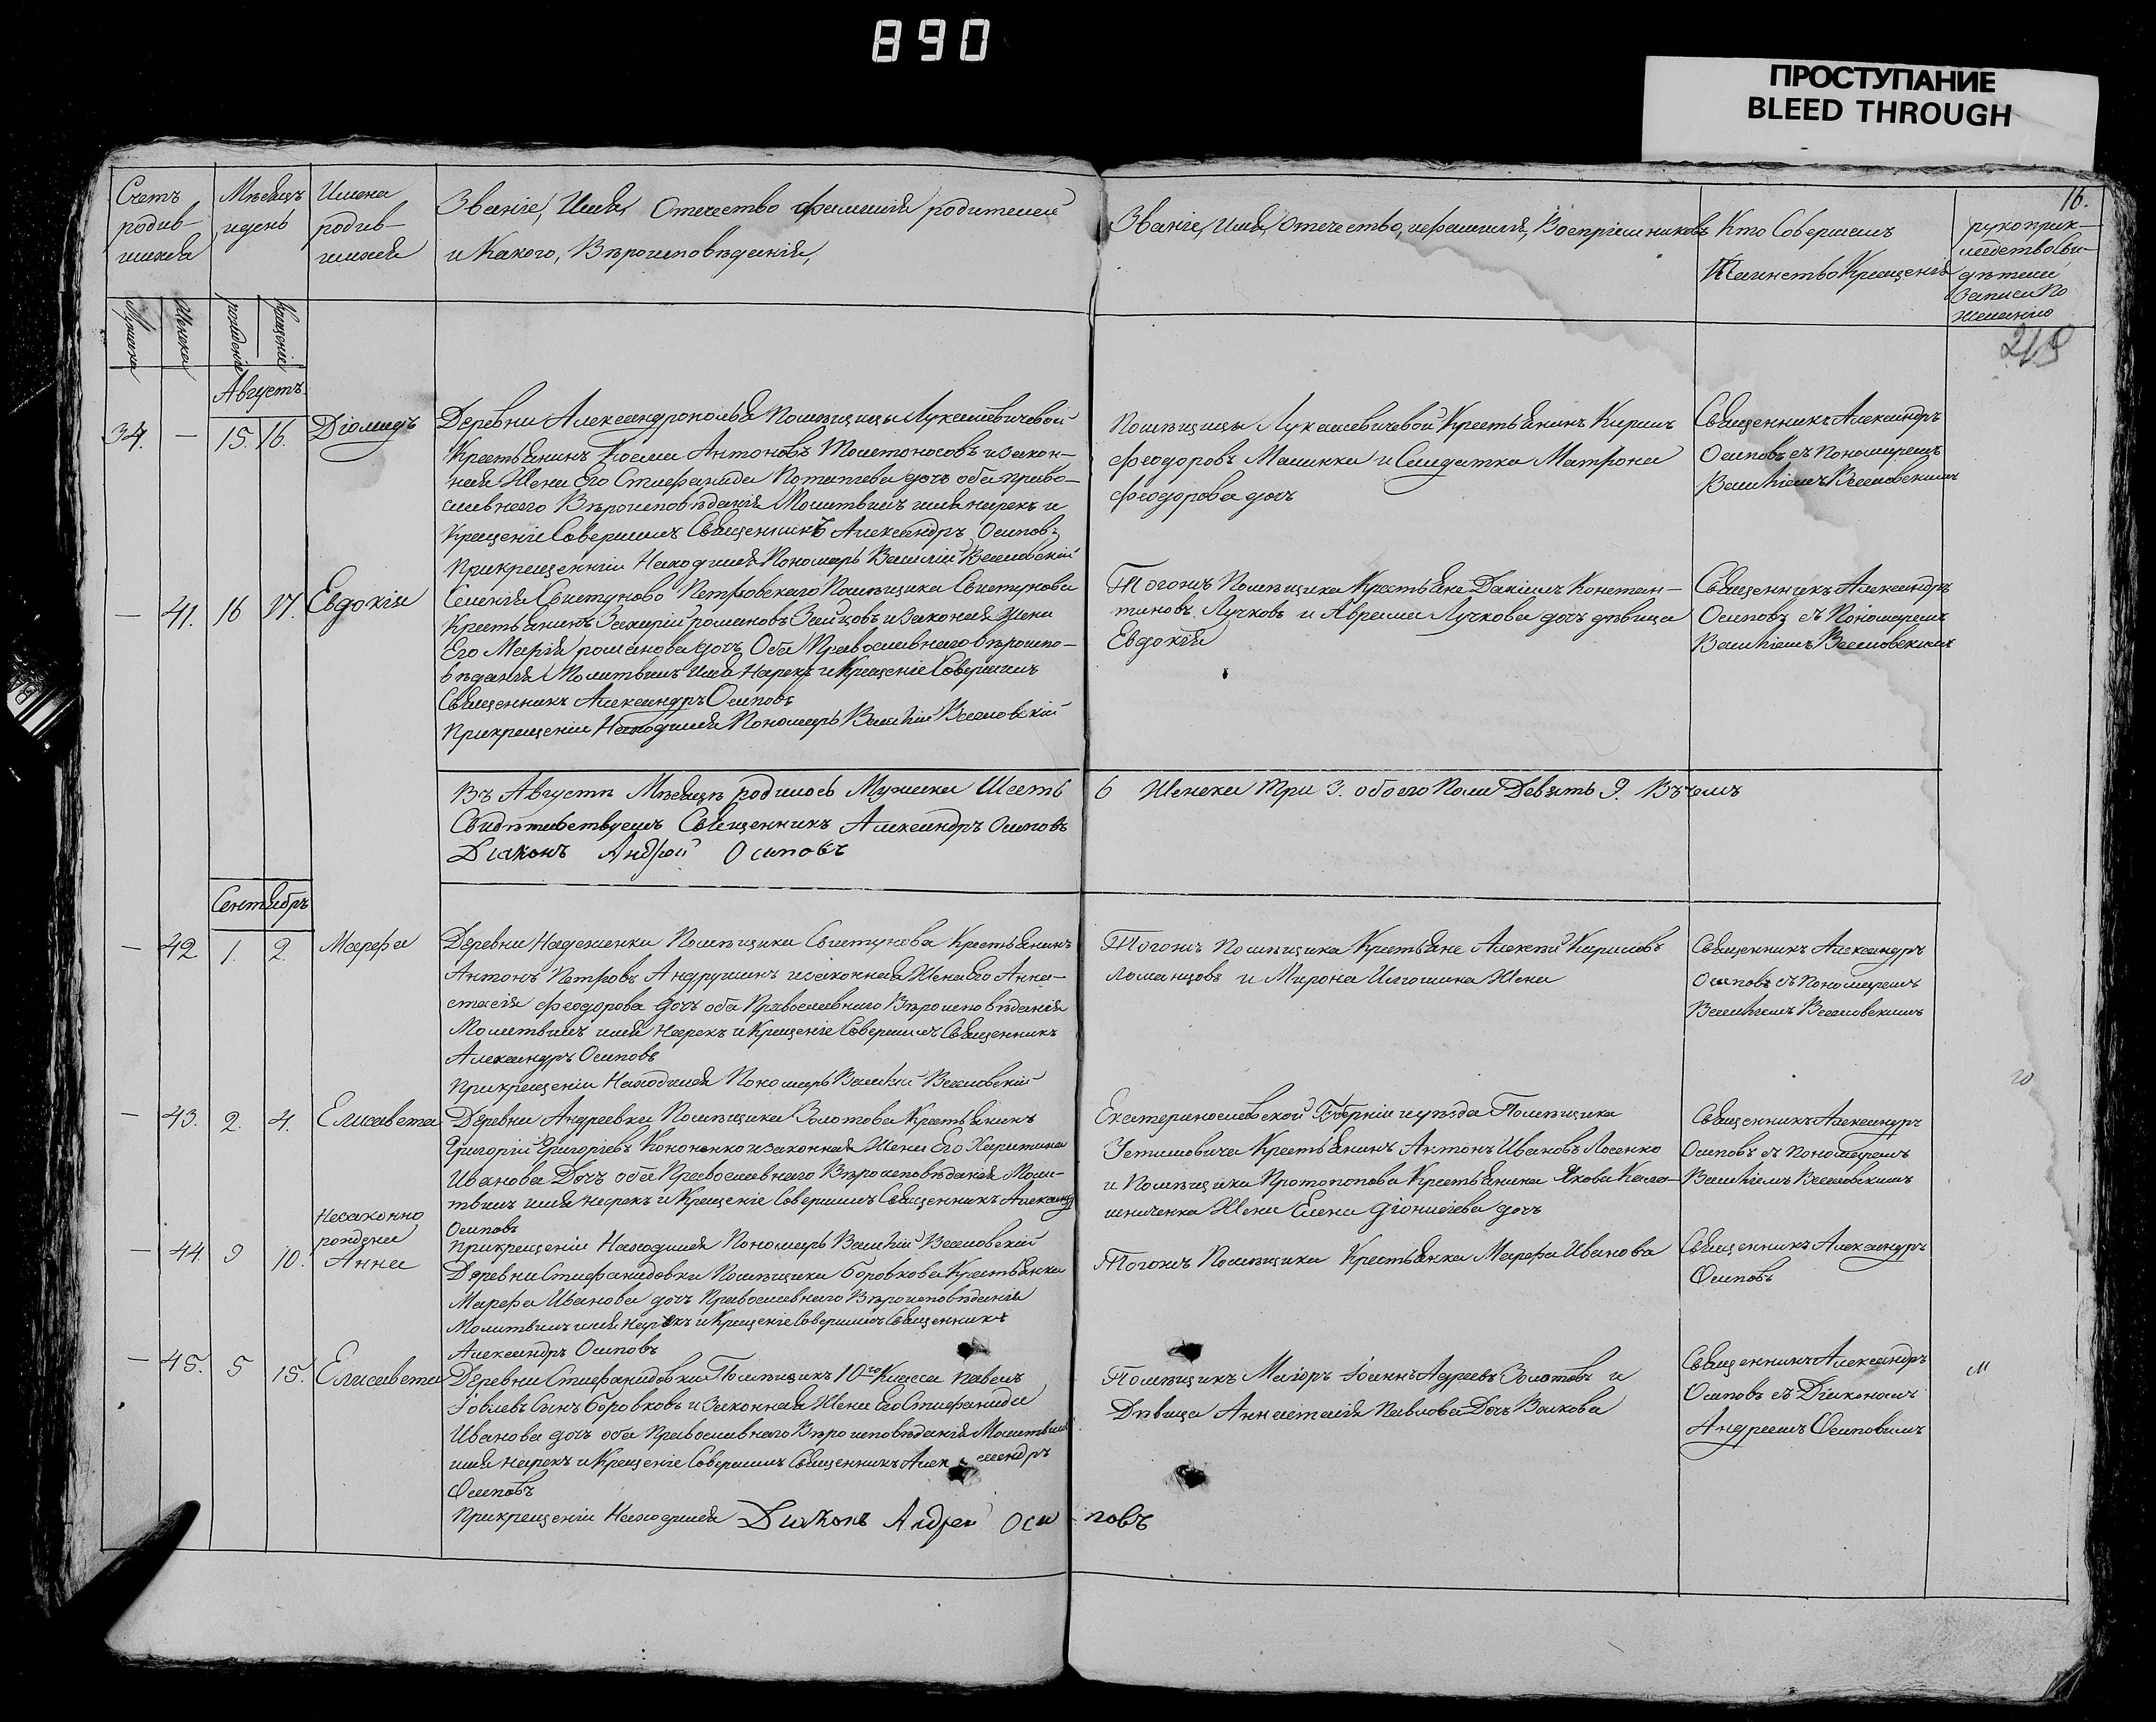 890
ПРОСТУПАНИЕ
BLEED THROUGH
16.
Счетъ родив- шихся
Мѣсяцъ и день
Имена родив- шихся
Званіе, Имя, Отечество фамилія родителей
и Какого, Вѣроисповѣданія,
Званіе, Имя, Отечество, и фамилія, Воспріемниковъ
Кто Совершалъ
Таинство Крещенія
рукоприк-
ладство сви-
дѣтелей
Записи По
желанію
Мужска
Женска
рожденія
Крещенія
218
Августъ
34. — 15. 16. Діомидъ
Деревни Александрополья Помѣщицы Лукашевичевой
Крестьянинъ Косма Антоновъ Толстоносовъ и закон-
ная Жена Его Стефанида Потапіева дочь оба право-
славнаго Вѣроисповѣданія Молитвилъ имя нарекъ и
Крещеніе Совершилъ Священникъ Александръ Осиповъ
При крещенніи Находился Пономарь Василій Веселовскій
Помѣщицы Лукашевичевой Крестьянинъ Кирилъ
Феодоровъ Малинка и Солдатка Матрона
Феодорова дочь
Священникъ Александръ
Осиповъ съ Пономаремъ
Василіемъ Веселовскимъ
— 41. 16 17. Евдокія
Селенія Свистуново Петровскаго Помѣщика Свистунова
Крестьянинъ Захарій романовъ Зайцовъ и Законая Жена
Его Марія романова дочь Оба Православнаго вѣроиспо-
вѣданія Молитвилъ Имя Нарекъ и Крещеніе Совершилъ
Священникъ Александръ Осиповъ
При крещеніи Находился Пономарь Василій Веселовскій
Тогожъ Помѣщика Крестьяне Данилъ Констан-
тиновъ Лучковъ и Аврама Лучкова дочь дѣвица
Евдокія
Священникъ Александръ
Осиповъ съ Пономаремъ
Василіемъ Веселовскимъ
Въ Августѣ Мѣсяцѣ родилось Мужска Шесть 6 Женска Три 3. обоего Пола Девять 9. Въ чемъ
Свидѣтельствуемъ Священникъ Александръ Осиповъ
Діаконъ Андрей Осиповъ
Сентябрь
— 42 1. 2. Марфа
Деревни Надеженки Помѣщика Свистунова Крестьянинъ
Антонъ Петровъ Андрушинъ и законная Жена Его Ана-
стасія Феодорова дочь оба Православнаго Вѣроисповѣданія
Молитвилъ имя Нарекъ и Крещеніе Совершилъ Священникъ
Александръ Осиповъ
При крещеніи Находился Пономарь Василій Веселовскій
Тогожъ Помѣщика Крестьяне Алексѣй Кириловъ
Ломанцовъ и Мирона Жена
Священникъ Александръ
Осиповъ съ Пономаремъ
Василіемъ Веселовскимъ
— 43. 2. 4. Елисавета
Деревни Андреевки Помѣщика Золотова Крестьянинъ
Григорій Григоріевъ Кононенко и законная Жена Его Харитина
Иванова Дочь оба Православнаго Вѣроисповѣданія Моли-
твилъ имя нарекъ и Крещеніе Совершилъ Священникъ Александръ
Осиповъ
При крещеніи Находился Пономарь Василій Веселовскій
Екатеринославской Губерніи и уѣзда Помѣщика
Устимовича Крестьянинъ Антонъ Ивановъ Лосенко
и Помѣщика Протопопова Крестьянина Якова Кала-
шниченка Жена Елена Діонисіева дочь
Священникъ Александръ
Осиповъ съ пономаремъ
Василіемъ Веселовскимъ
Незаконно
рождена
— 44. 9 10. Анна
Деревни Стефанидовки Помѣщика Боровкова Крестьянка
Марфа Иванова дочь Православнаго Вѣроисповѣданія
Молитвилъ имя нарекъ и Крещеніе Совершилъ Священникъ
Александръ Осиповъ
Тогожъ Помѣщика Крестьянка Марфа Иванова
Священникъ Александръ
Осиповъ
— 45. 5 15. Елисавета
Деревни Стефанидовки Помѣщикъ 10го Класса Павелъ
Іовлевъ Сынъ Боровковъ и Законная Жена Его Стефанида
Иванова дочь оба Православнаго Вѣроисповѣданія Молитвилъ
имя нарекъ и Крещеніе Совершилъ Священникъ Александръ
Осиповъ
При крещеніи Находился Діаконъ Андрей Осиповъ
Помѣщикъ Маіоръ Іоаннъ Адреевъ Золотовъ и
Дѣвица Анастасія Павлова Дочь Волкова
Священникъ Александръ
Осиповъ съ Діакономъ
Андреемъ Осиповымъ